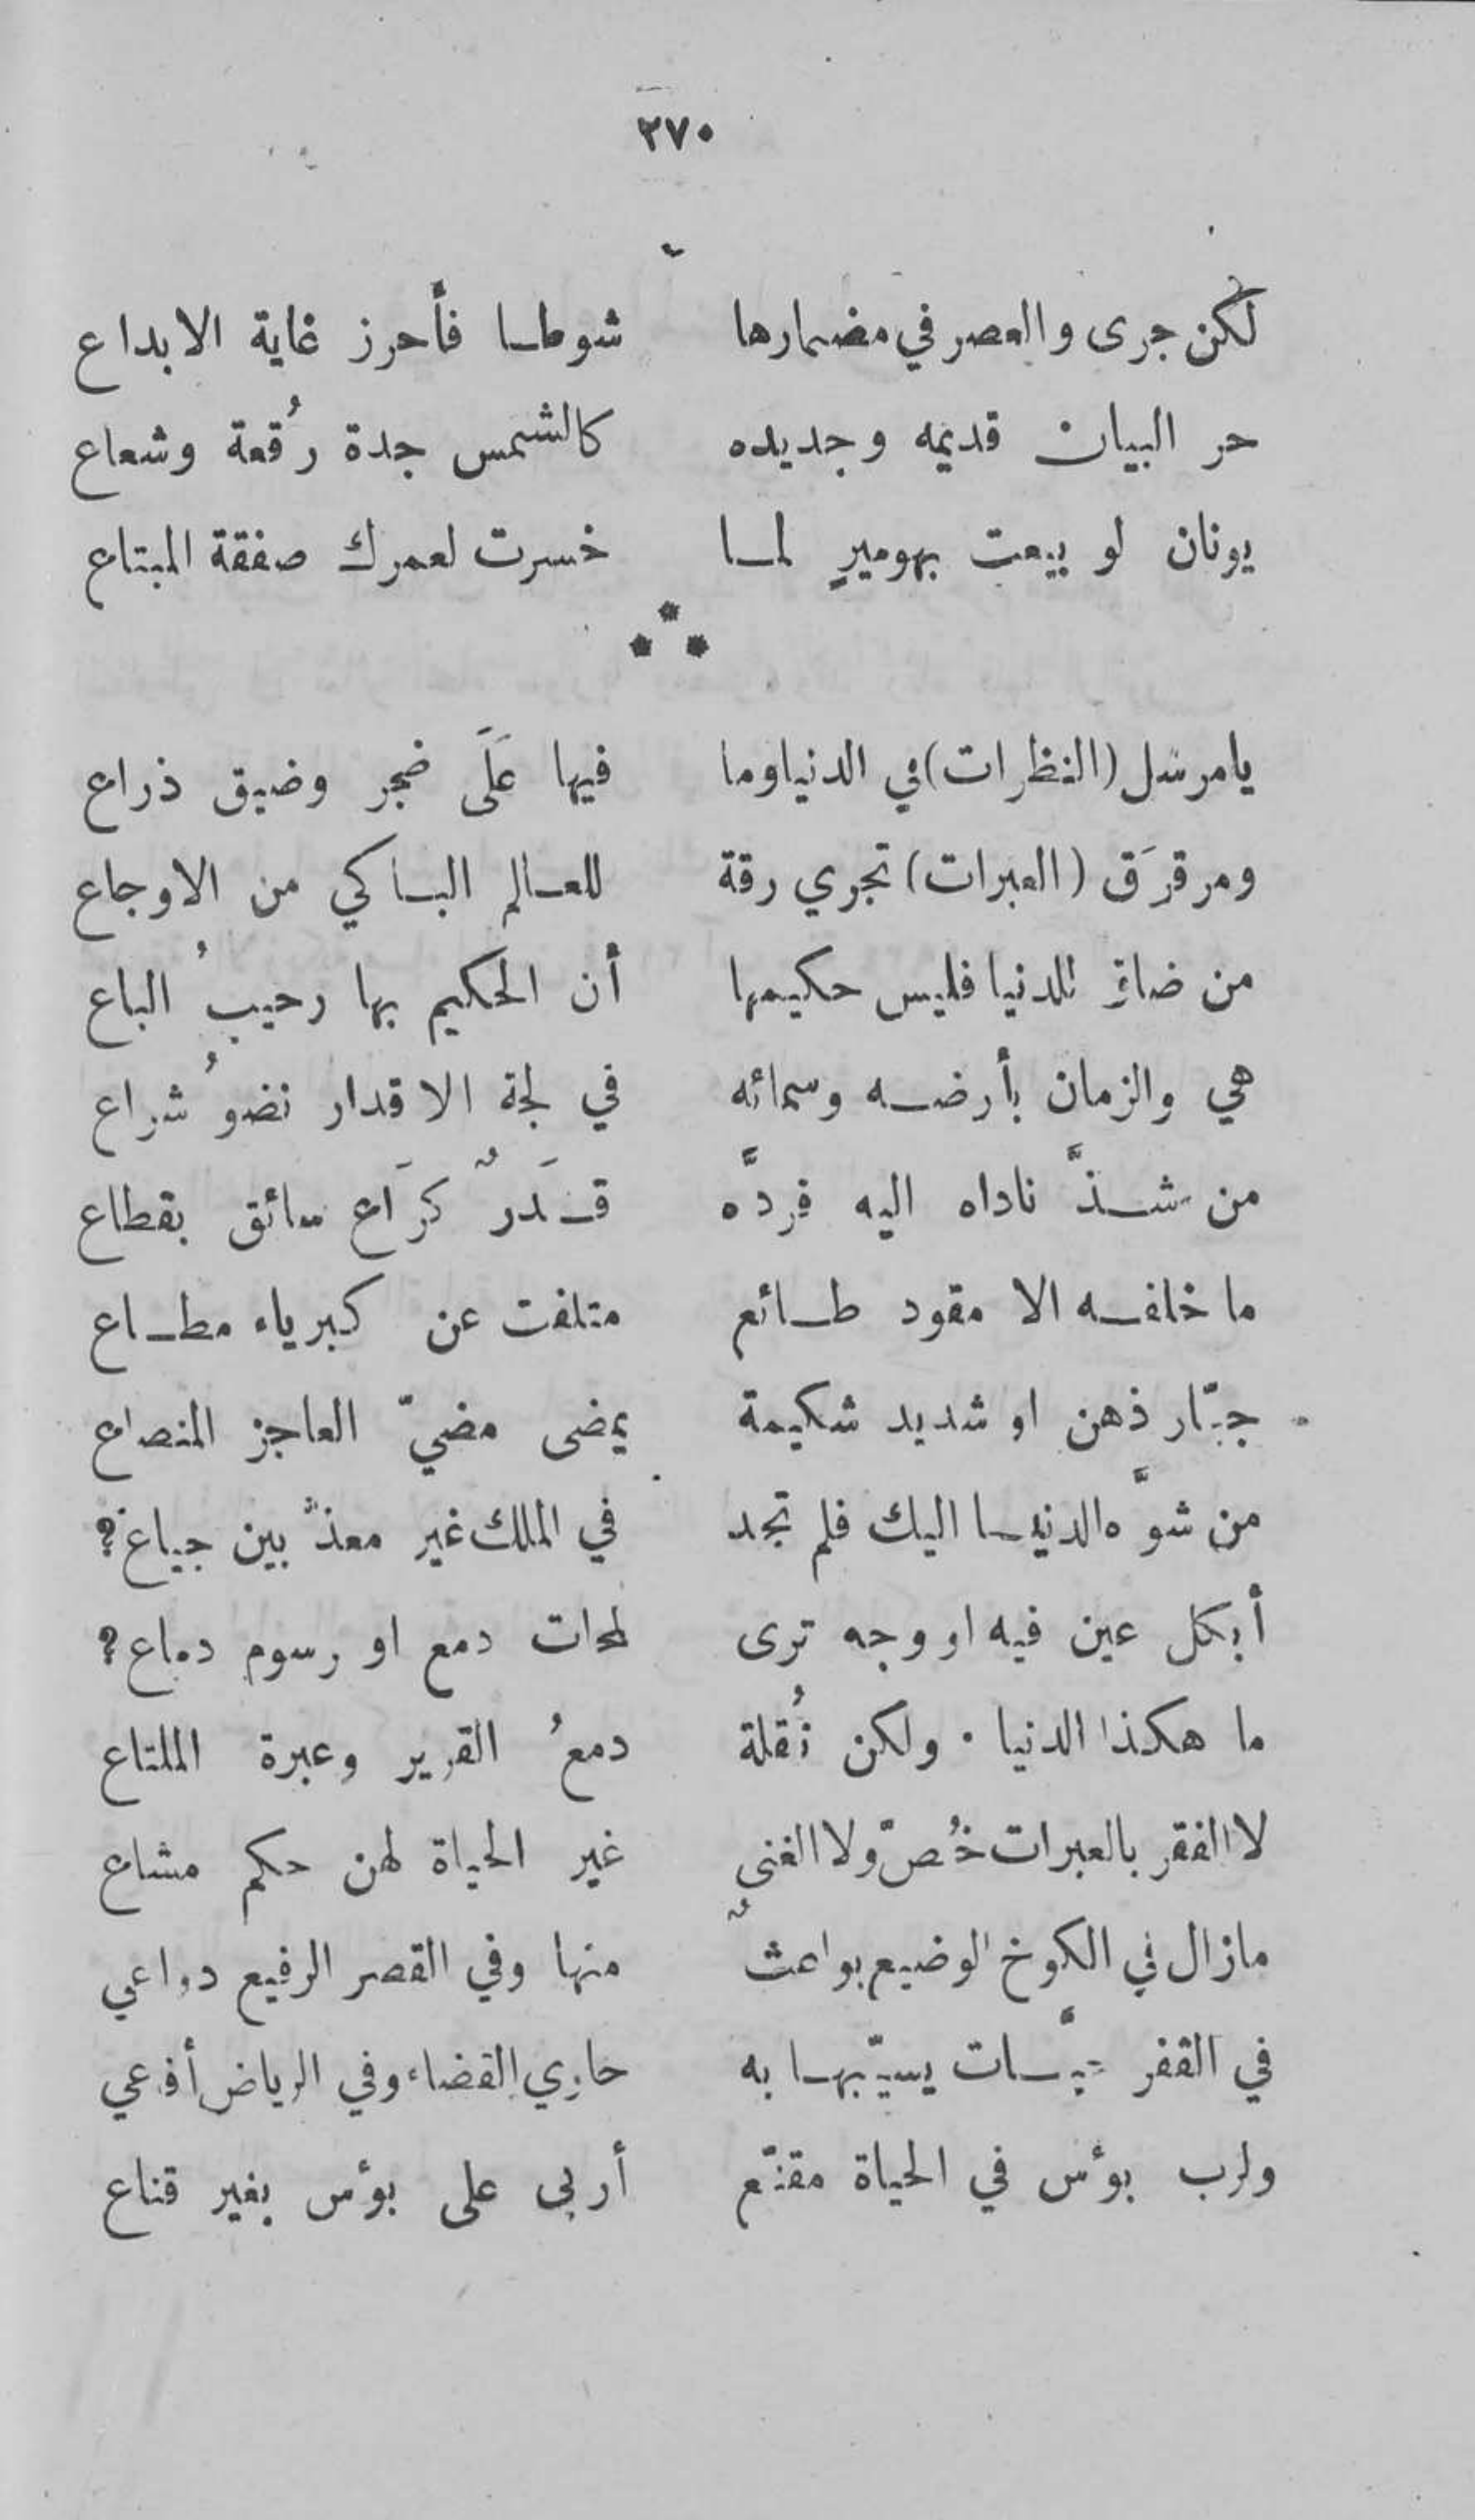 ٢٧٠
لكن جرى والعصر في مضمارها شوطا فأحرز غاية الابداع
حر البيان قديمه وجديده كالشمس جدة رُقعة وشعاع
يونان لو بيعت بهوميرٍ لما خسرت لعمرك صفقة المبتاع
يامرسل (النظرات) في الدنيا وما فيها عَلَى ضجر وضيق ذراع
ومرقرَق (العبرات) تجري رقة للعالم الباكي من الاوجاع
من ضاق للدنيا فليس حكيمها أن الحكيم بها رحيبُ الباع
هي والزمان بأرضه وسمائه في لجة الاقدار نضوُ شراع
من شذَّ ناداه اليه فردَّه قَدرٌ كرَاع سائق بقطاع
ما خلفه الا مقود طائع متلفت عن كبرياء مطاع
جبّار ذهن او شديد شكيمة يمضى مضيّ العاجز المنصاع
من شوَّه الدنيا اليك فلم تجد في الملك غير معذبين جياع؟
أبكل عين فيه او وجه ترى لمحات دمع او رسوم دماع؟
ما هكذا الدنيا. ولكن نُقلة دمعُ القرير وعبرة الملتاع
لا الفقر بالعبرات خُصَّ ولا الغنى غير الحياة لهن حكم مشاع
مازال في الكوخ الوضيع بواعثٌ منها وفي القصر الرفيع دواعي
في القفر يسيّبها به حاوي القضاء وفي الرياض أفاعي
ولرب بؤس في الحياة مقنّع أربى على بؤس بغير قناع